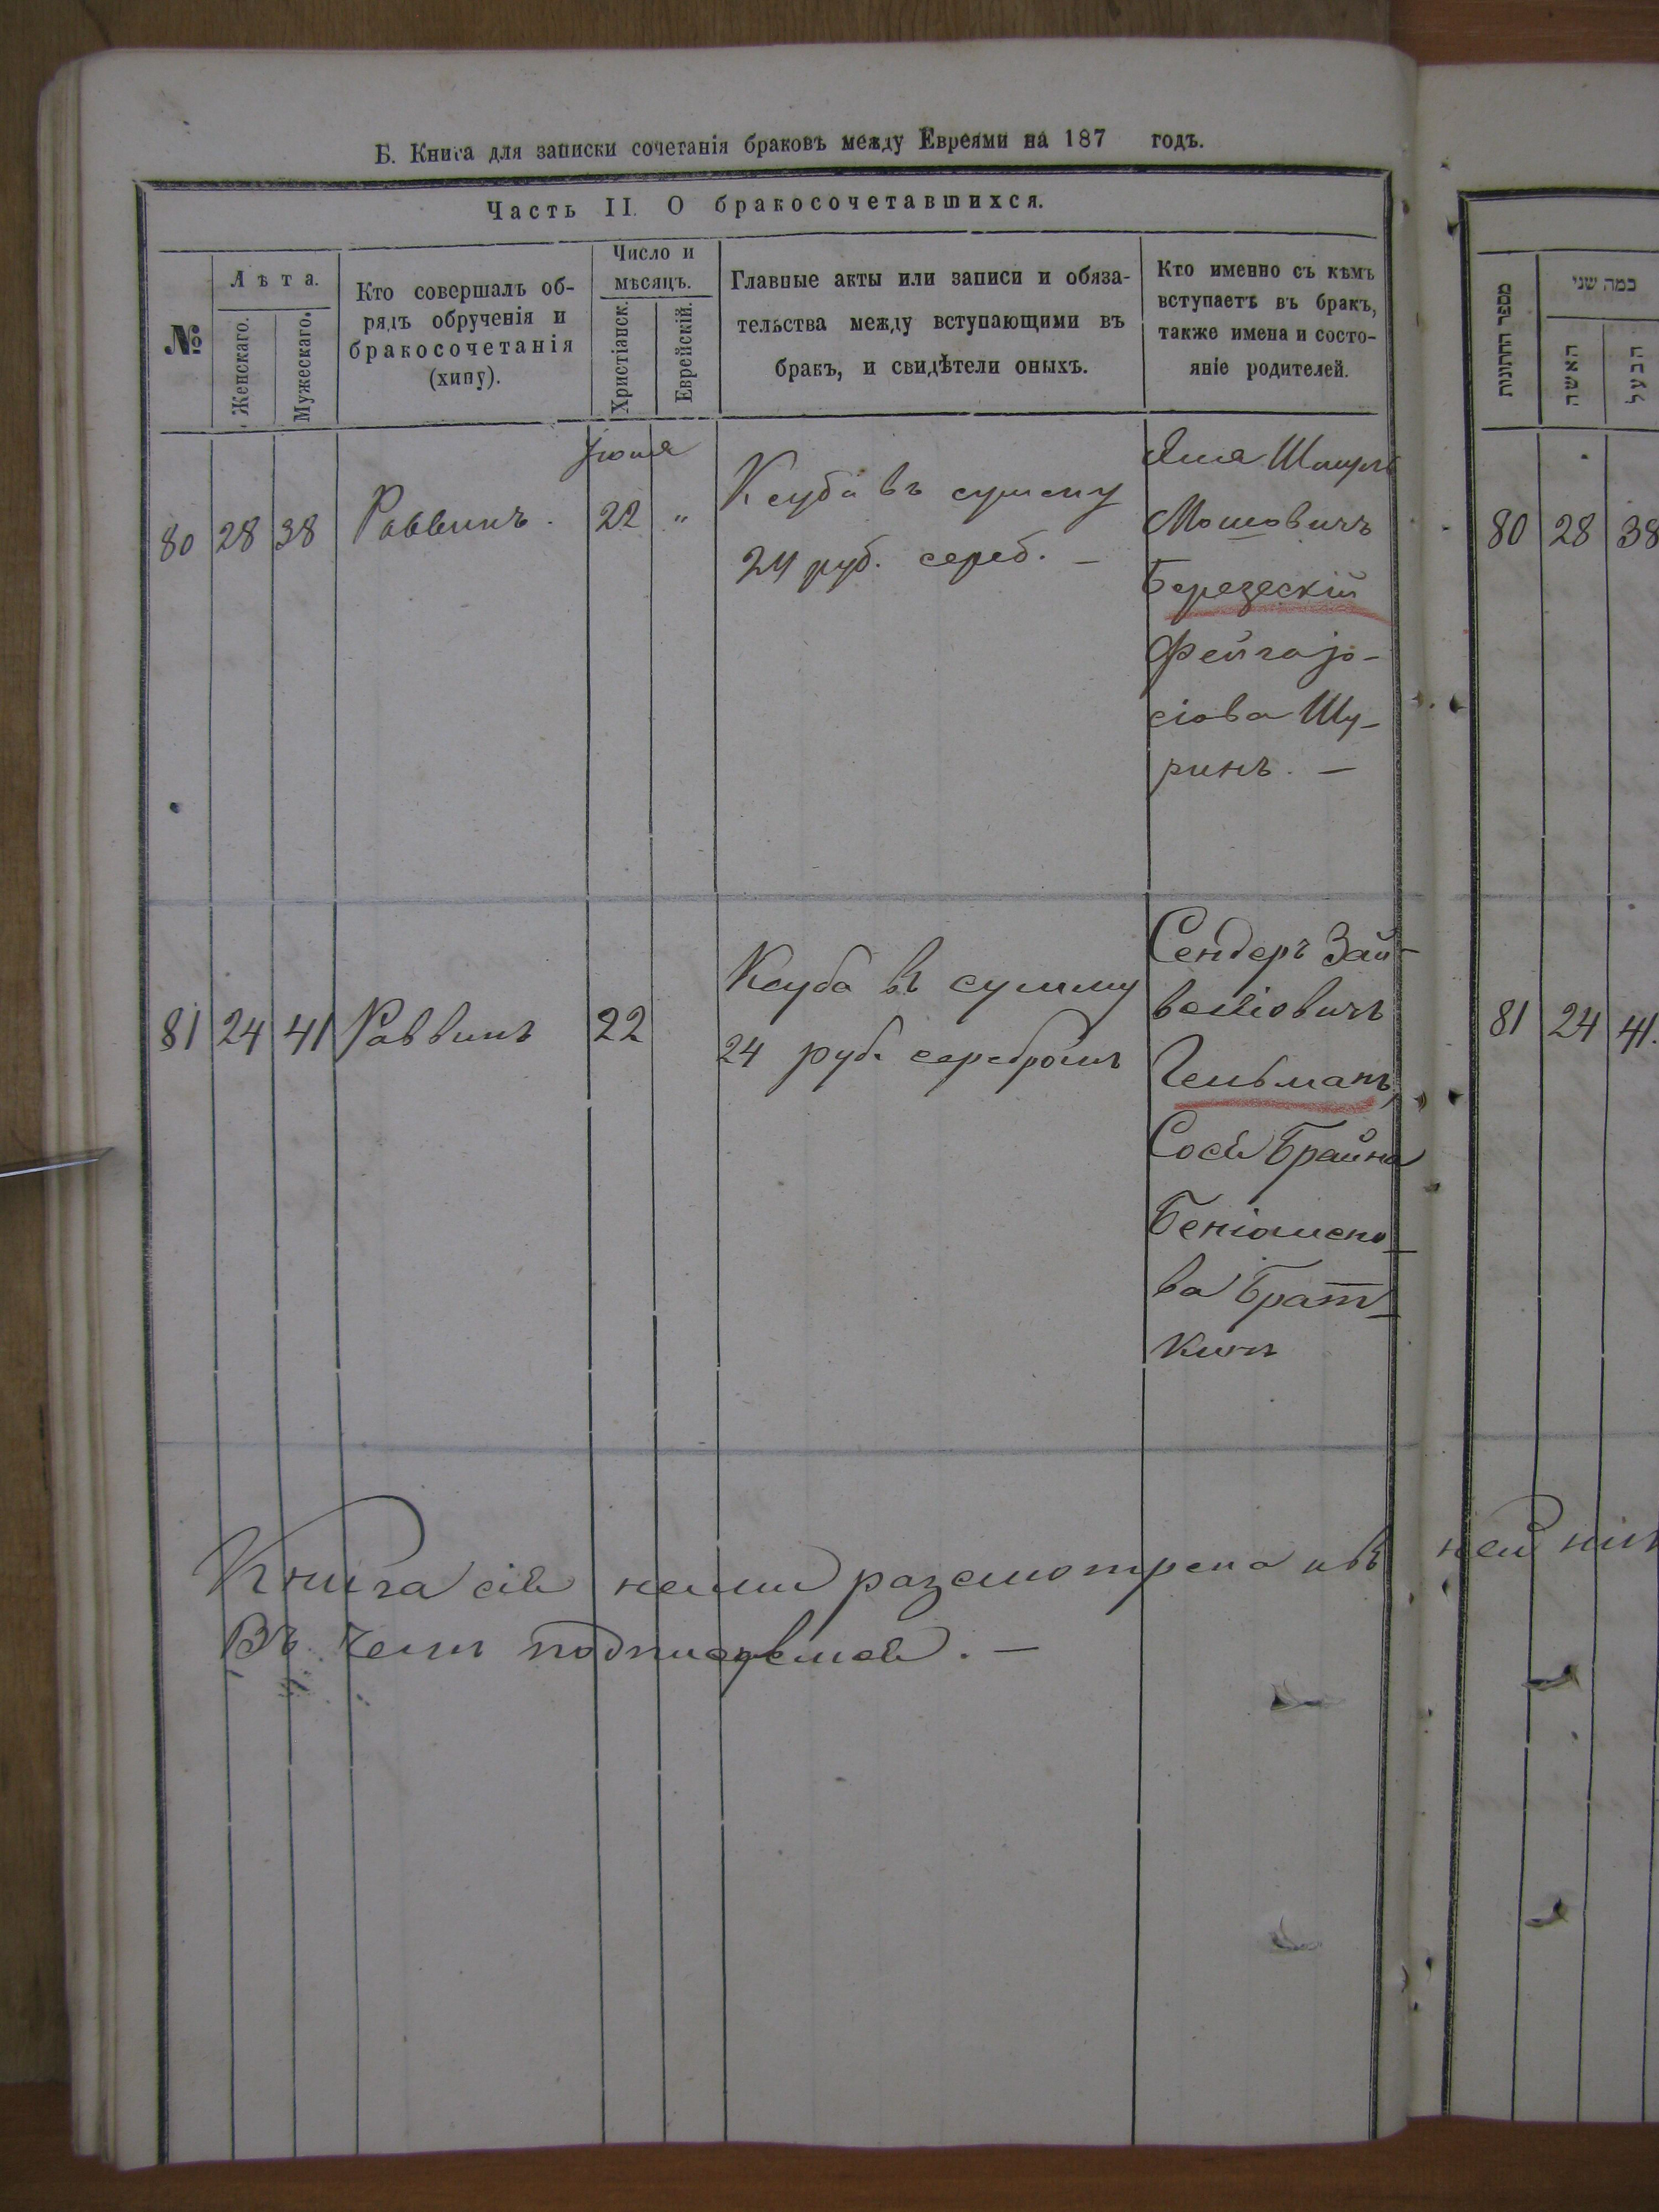 Б. Книга для записки сочетанія браковъ между Евреями на 187 годъ.
Часть II. О бракосочетавшихся.
№
Лѣта.
Женскаго.
Мужескаго.
Кто совершалъ об-
рядъ обрученія и
бракосочетанія
(хипу).
Число и
мѣсяцъ.
Христіанск.
Еврейскій.
Главные акты или записи и обяза-
тельства между вступающими въ
бракъ, и свидѣтели оныхъ.
Кто именно съ кѣмъ
вступаетъ въ бракъ,
также имена и состо-
яніе родителей.
80 28 38 Раввинъ. Іюня 22 "
Ксуба въ сумму
24 руб. сереб. —
Мошовичъ
Березскій
Фейга Іо-
сіова Шу-
ринъ. —
81 24 41 Раввинъ 22
Ксуба въ сумму
24 руб. серебромъ
Сендеръ Зай-
веліовичъ
Гельманъ,
Сося Брайна
Беніамено-
ва Брат-
кинъ
Книга сія нами разсмотрена и въ ней
Въ чемъ подписуемся. —
מספר החתונות
כמה שני
האשה
הבעל
80 28 38
81 24 41.